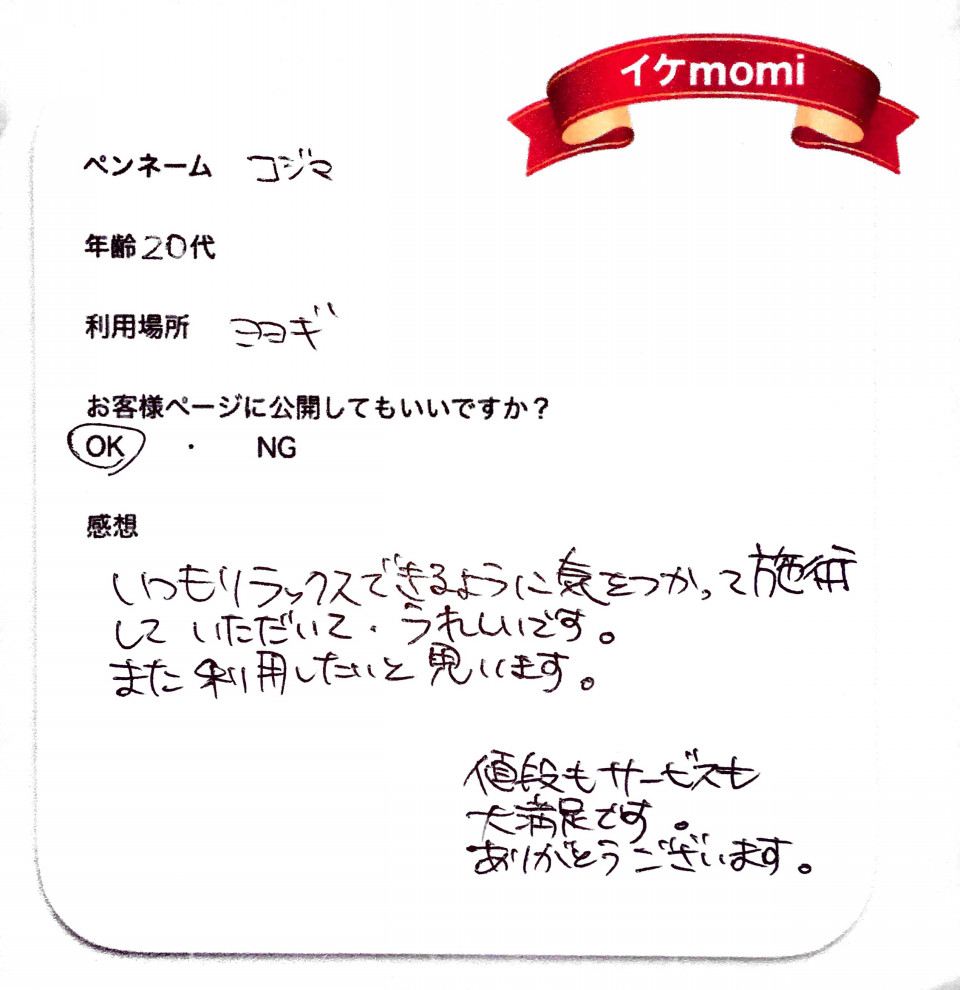 イケmomi
ペンネーム コジマ
年齢20代
利用場所 ヨヨギ
お客様ページに公開してもいいですか？
OK ・ NG
感想
いつもリラックスできるように気をつかって施術
して いただいて、うれしいです。
また利用したいと思います。
値段もサービスも
大満足です。
ありがとうございます。